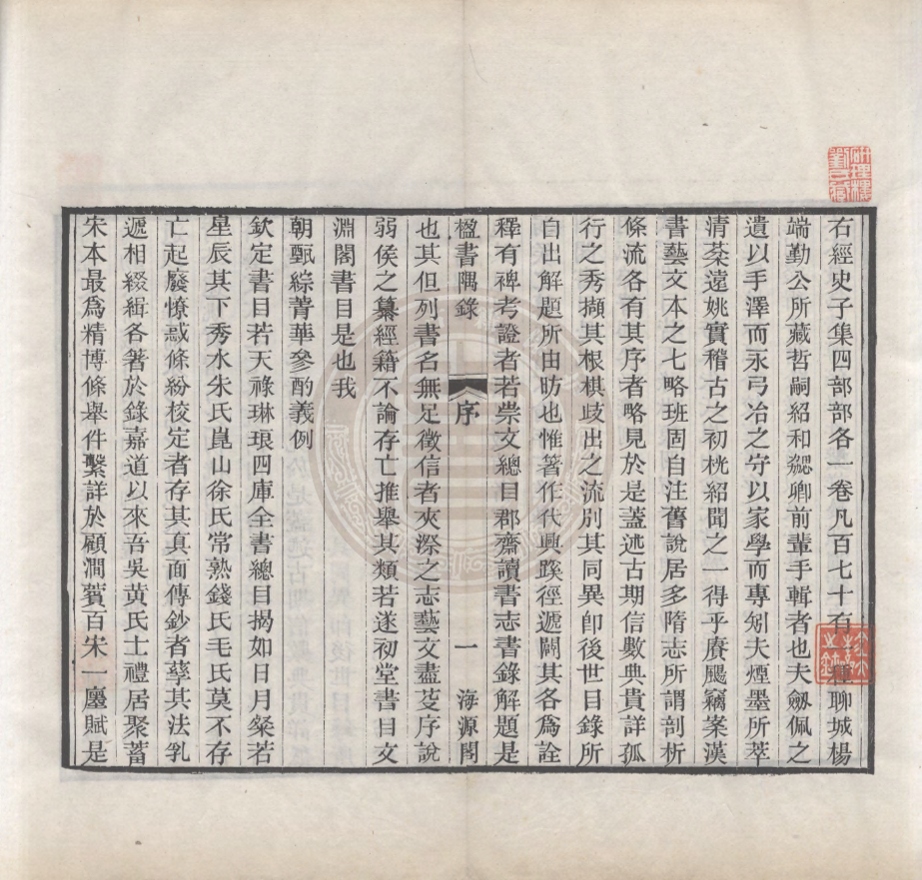 右經史子集四部部各一卷凡百七十有一種聊城楊
端勤公所藏哲嗣紹和勰卿前輩手輯者也夫劔佩之
遺以手澤而永弓冶之守以家學而專矧夫煙墨所萃
清棻遠姚實稽古之初桄紹聞之一得乎賡颺竊案漢
書藝文本之七略班固自注舊說居多隋志所謂剖析
條流各有其序者略見於是蓋述古期信數典貴詳孤
行之秀擷其根棋歧出之流別其同異卽後世目錄所
自出解題所由昉也惟箸作代興蹊徑遞闢其各爲詮
釋有裨考證者若崇文總目郡齋讀書志書錄解題是
楹書隅錄 序 一 海源閣
也其但列書名無足徵信者夾漈之志藝文盡芟序說
弱侯之纂經籍不論存亡推舉其類若遂初堂書目文
淵閣書目是也我
朝甄綜菁華參酌義例
欽定書目若天祿琳琅四庫全書總目揭如日月粲若
星辰其下秀水朱氏崑山徐氏常熟錢氏毛氏莫不存
亡起廢憭惑條紛校定者存其真面傳鈔者孳其法乳
遞相綴緝各著於錄嘉道以來吾吳黃氏士禮居聚蓄
宋本最爲精博條舉件繫詳於顧澗薲百宋一廛賦是